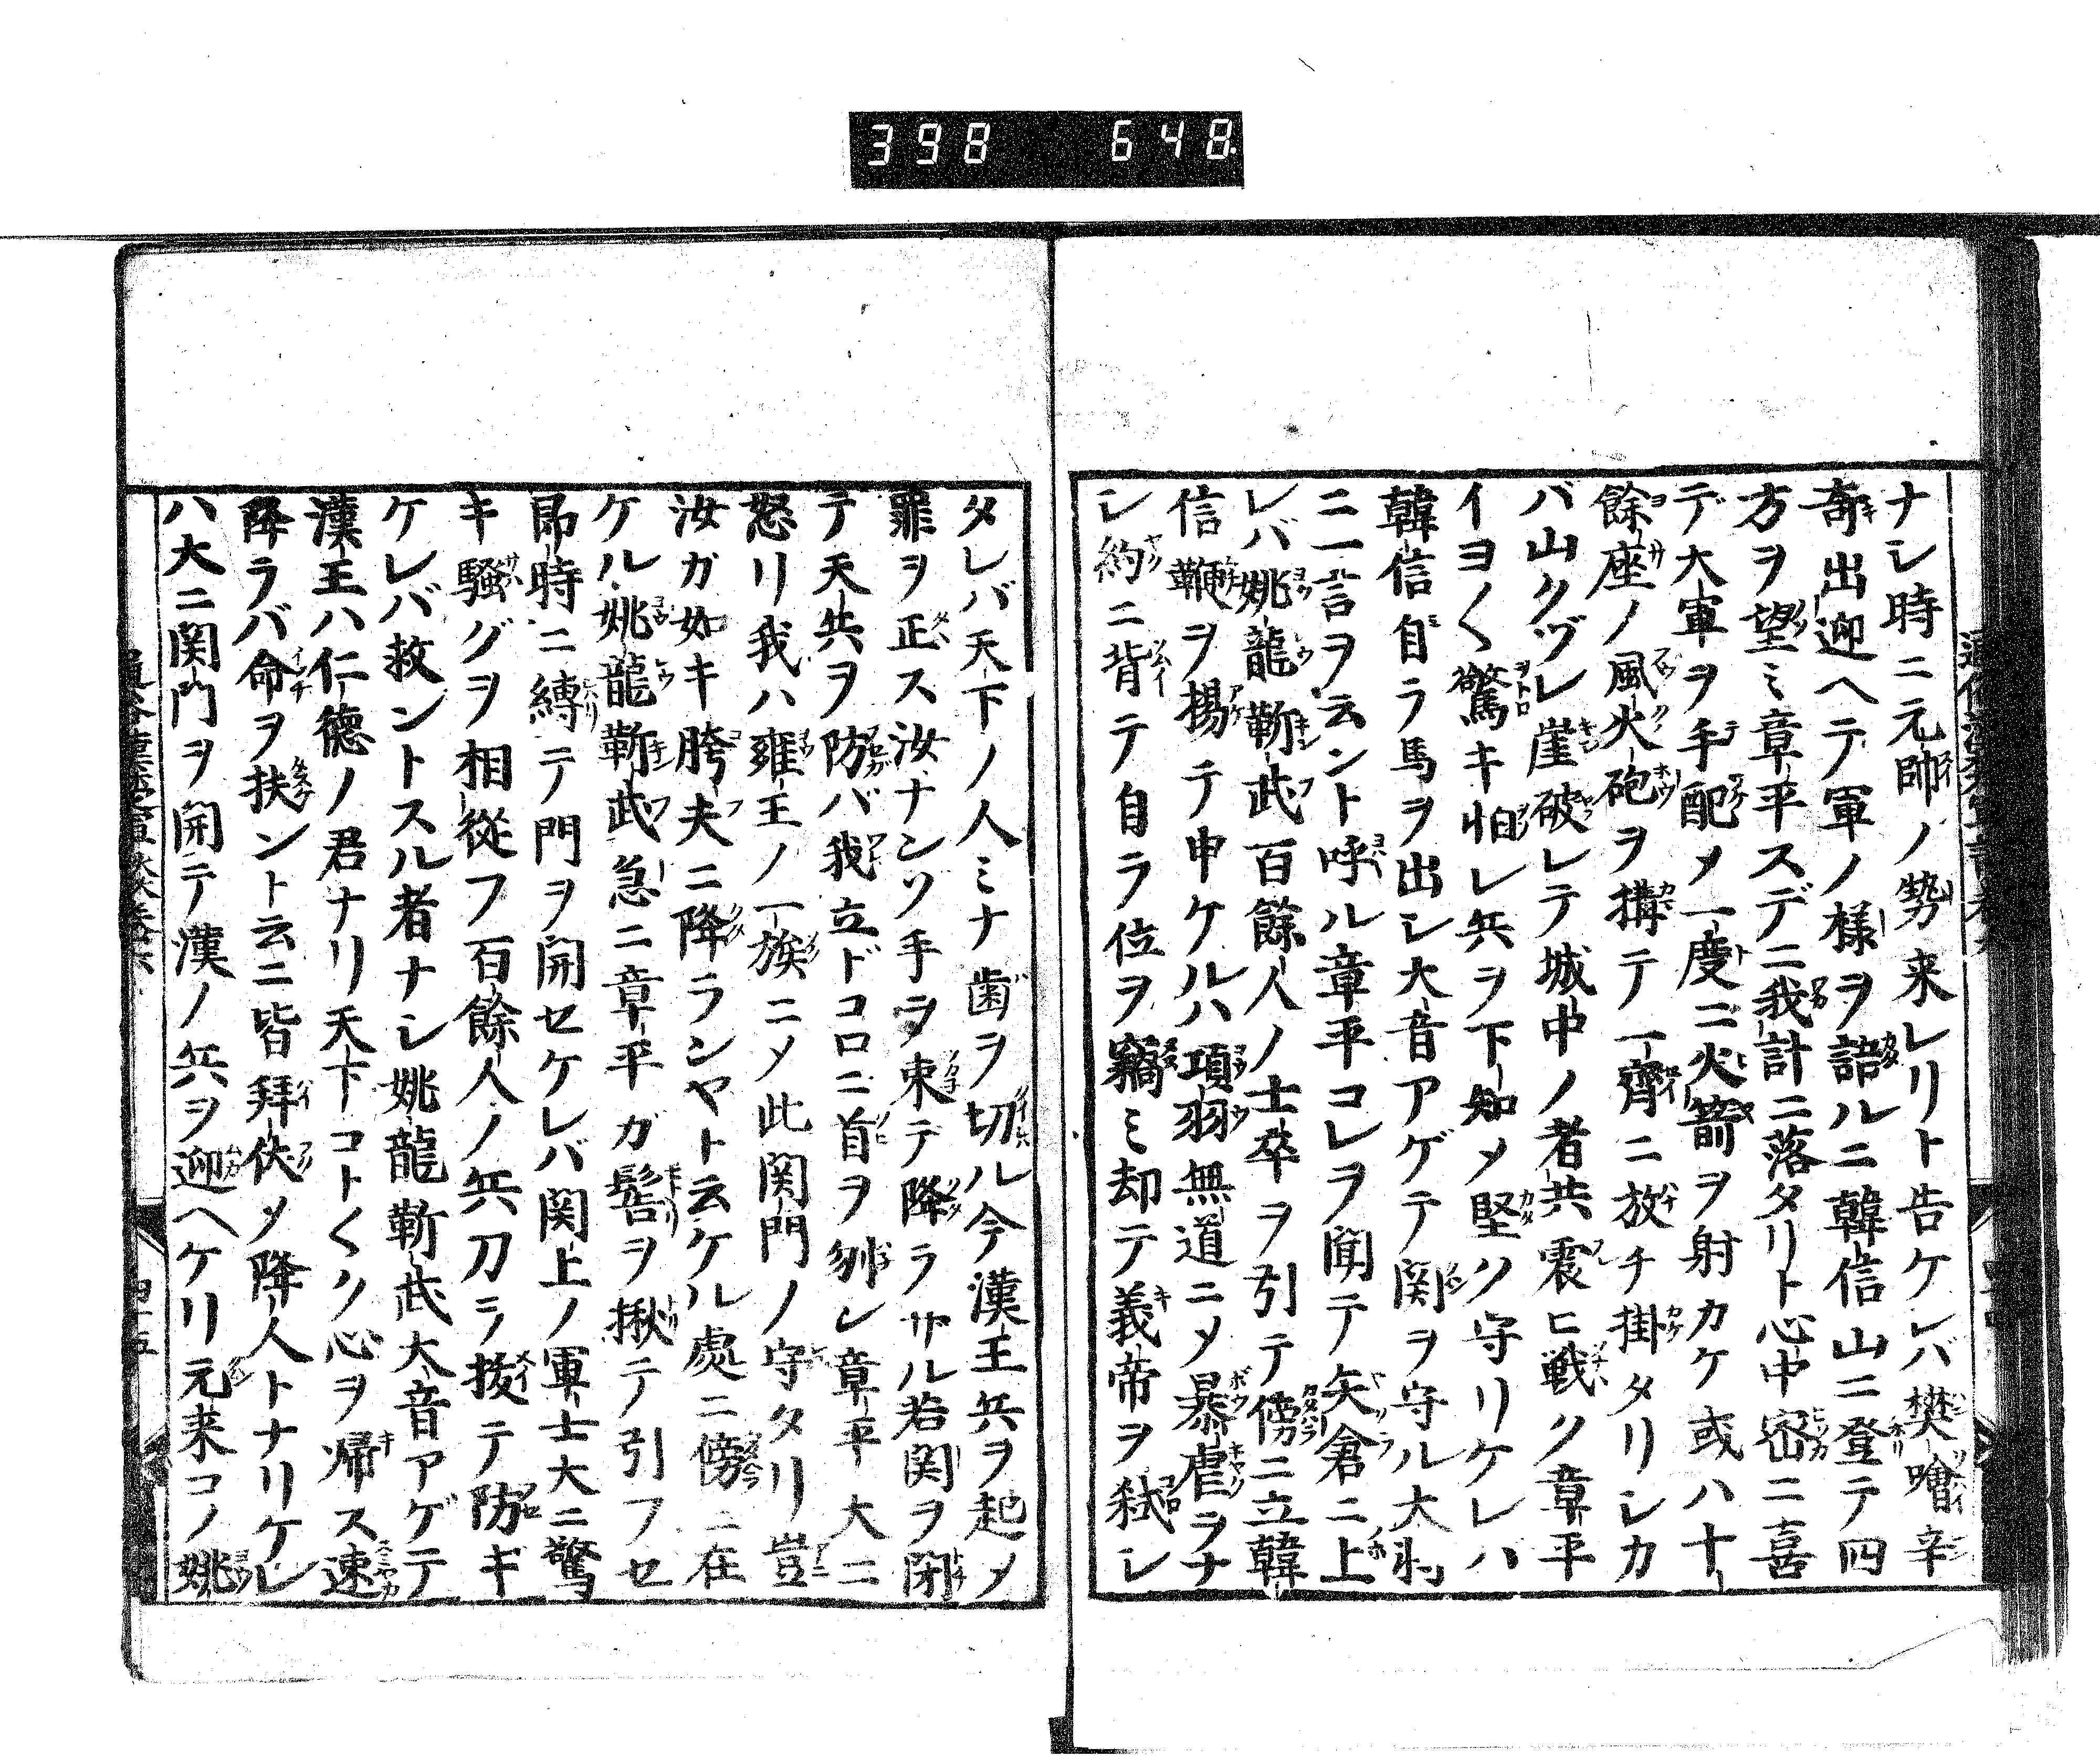 398 648.
ナシ時ニ元帥ノ勢来レリト告ケレバ樊噲辛
奇出迎ヘテ軍ノ様ヲ語ルニ韓信山ニ登テ四
方ヲ望ミ章平スデニ我計ニ落タリト心中密ニ喜
デ大軍ヲ手配メ一度ニ火箭ヲ射カケ或ハ十
餘座ノ風火砲ヲ搆テ一齊ニ放チ掛タリシカ
バ山クヅレ崖破レテ城中ノ者共震ヒ戦ク章平
イヨ〱驚キ怕レ兵ヲ下知メ堅ク守リケレハ
韓信自ラ馬ヲ出シ大音アゲテ関ヲ守ル大将
ニ一言ヲ云ント呼ル章平コレヲ聞テ矢倉ニ上
レバ姚龍靳武百餘人ノ士卒ヲ引テ傍ニ立韓
信鞭ヲ揚テ申ケルハ項羽無道ニメ暴虐ヲナ
シ約ニ背テ自ラ位ヲ竊ミ却テ義帝ヲ弑シ
タレバ天下ノ人ミナ歯ヲ切ル今漢王兵ヲ起メ
罪ヲ正ス汝ナンソ手ヲ束テ降ラサル若関ヲ閉
テ天兵ヲ防バ我立ドコロニ首ヲ刎レ章平大ニ
怒リ我ハ雍王ノ一族ニメ此関門ノ守タリ豈
汝ガ如キ胯夫ニ降ランヤト云ケル處ニ傍ニ在
ケル姚龍靳武急ニ章平ガ髻ヲ揪テ引フセ
即時ニ縛テ門ヲ開セケレバ関上ノ軍士大ニ驚
キ騒グヲ相從フ百餘人ノ兵刀ヲ抜テ防ギ
ケレバ救ントスル者ナシ姚龍靳武大音アゲテ
漢王ハ仁德ノ君ナリ天下コト〱ク心ヲ帰ス速
降ラバ命ヲ扶ント云ニ皆拜伏メ降人トナリケレ
ハ大ニ関門ヲ開テ漢ノ兵ヲ迎ヘケリ元来コノ姚